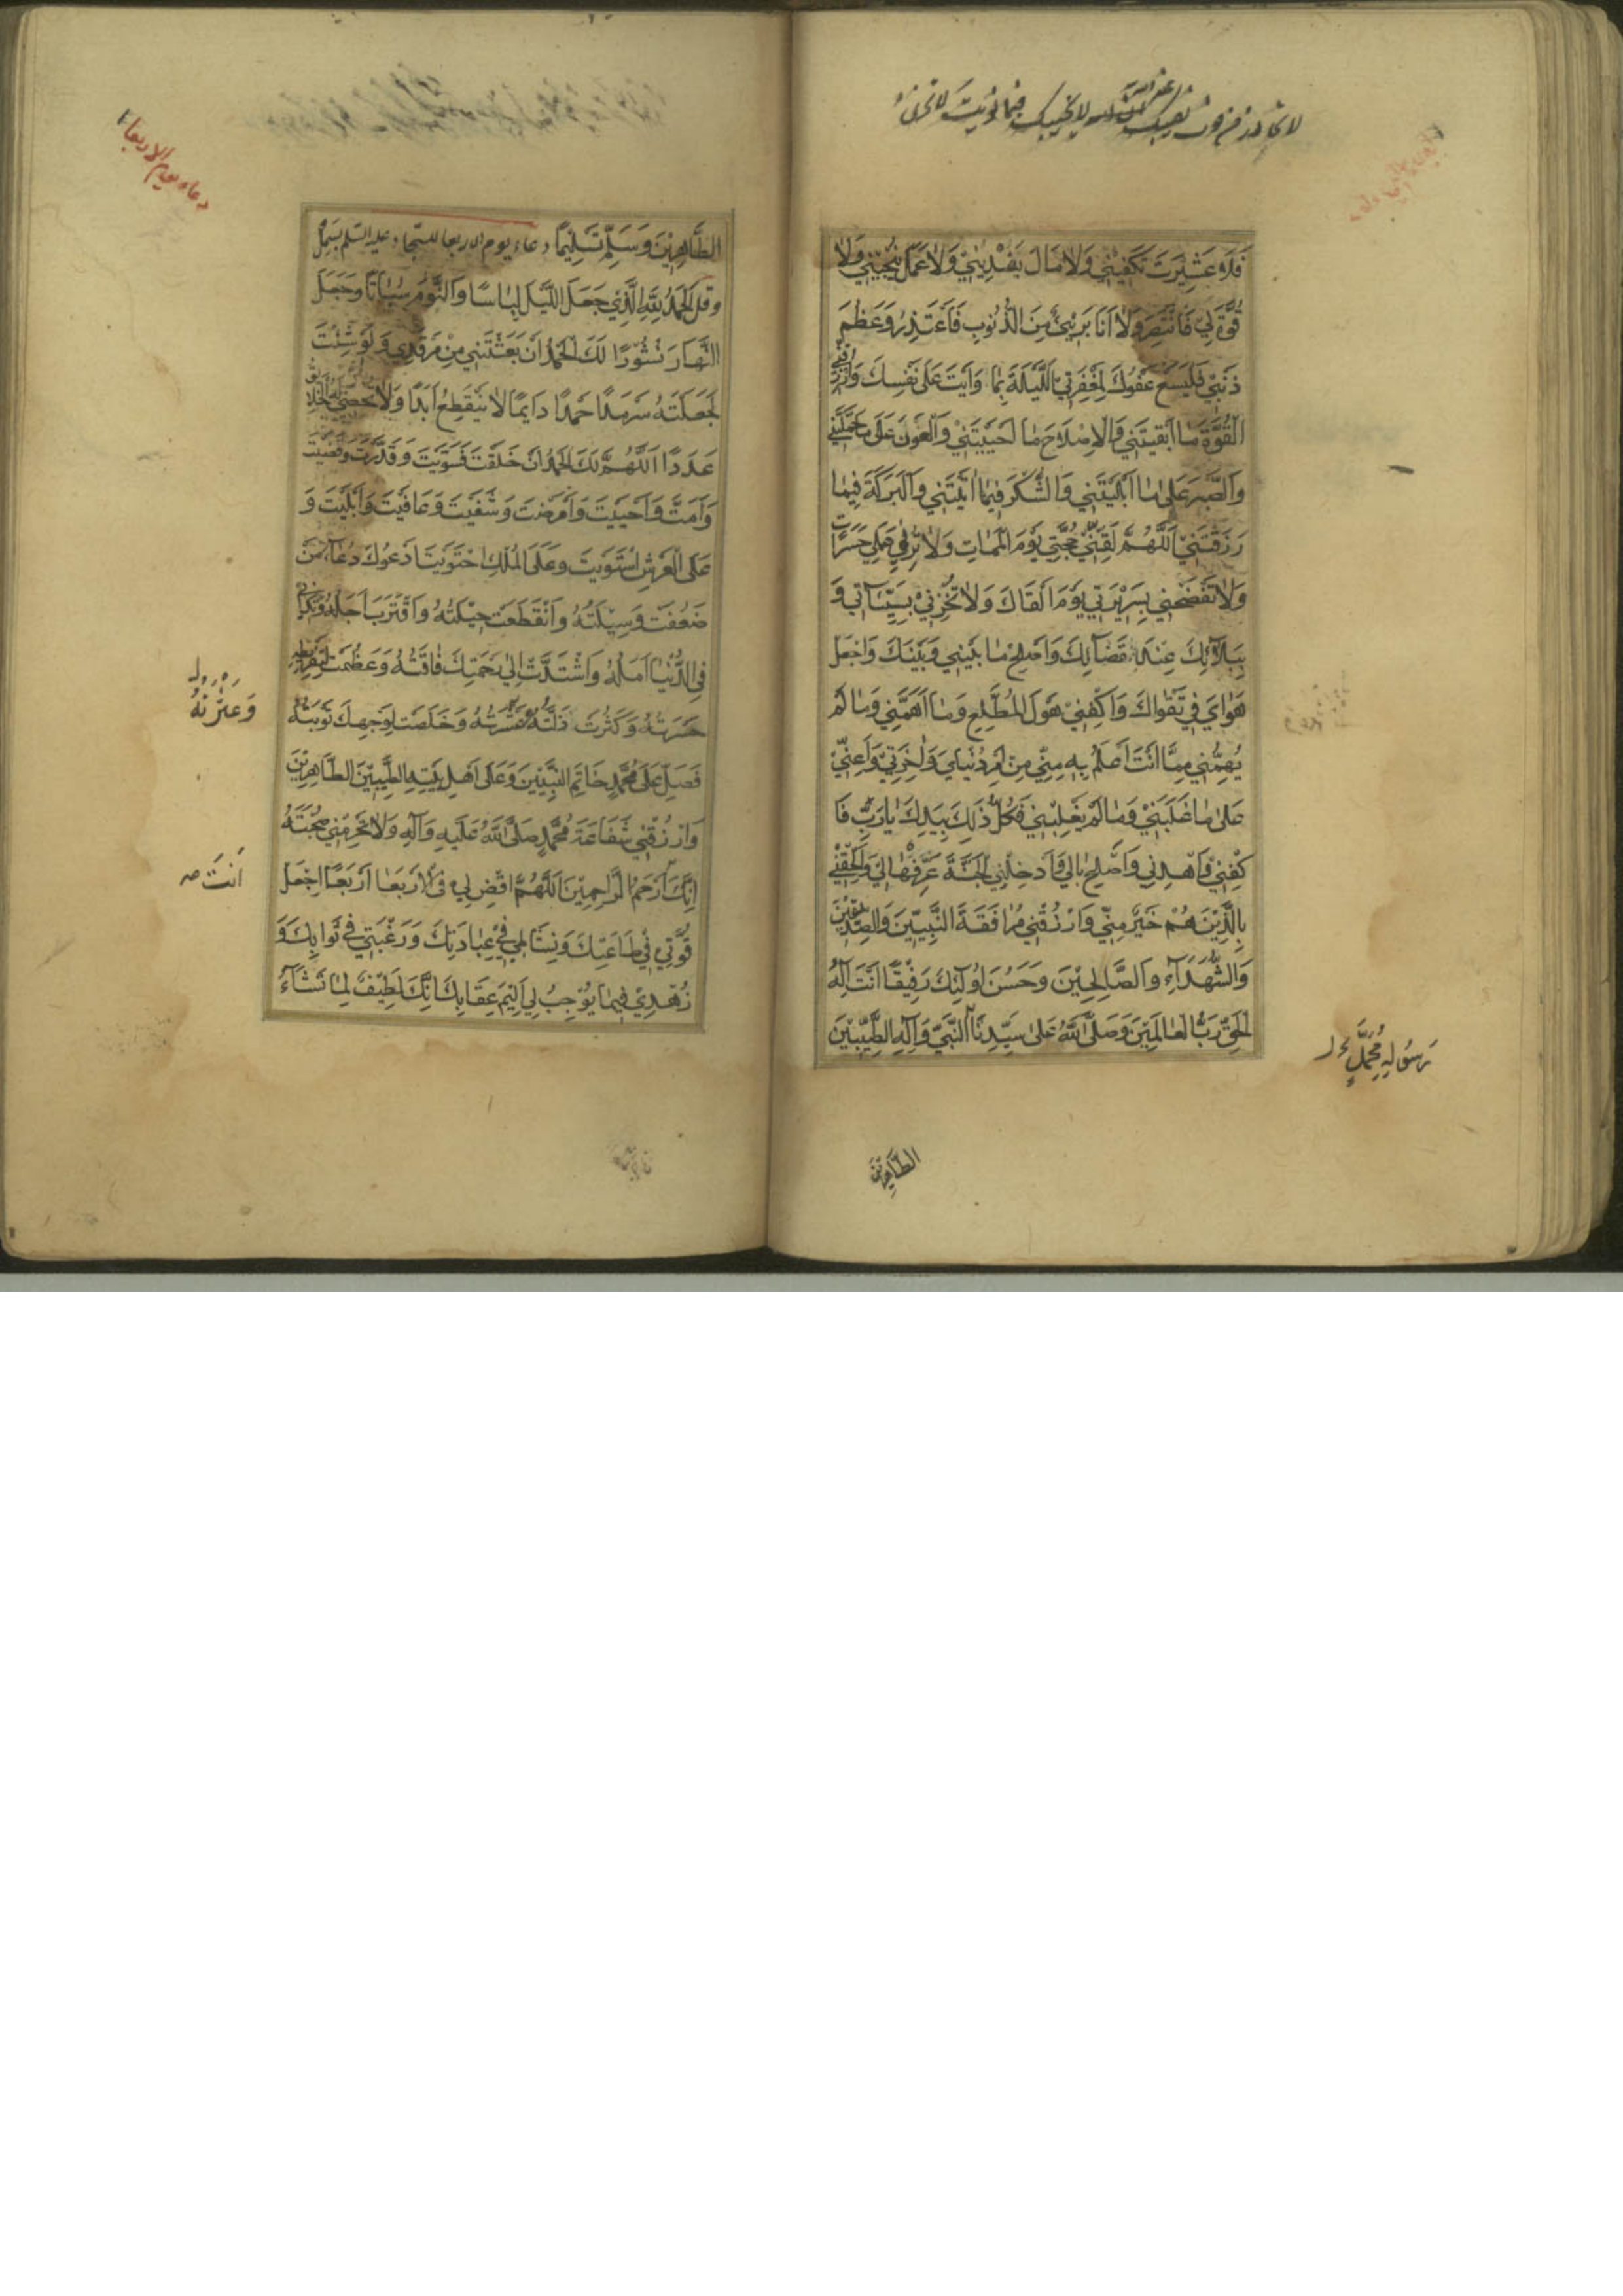 فَلَا عَشِيرَتَ تَكْفِيْنِي وَلَا مَالَ يَفْدِيْنِي وَلَا عَمَلَ يُنْجِيْنِي وَلَا
قُوَّةَ لِيْ فَانْتَصِرَ وَلَا اَنَا بَرِيْئٌ مِنَ الذُّنُوبِ فَاَعْتَذِرُ وَعَظُمَ
ذَنْبِيْ فَلْيَسَعْ عَفْوُكَ لِمَغْفِرَتِيْ اللَّيْلَةَ بِمَا وَاَيْتَ عَلَى نَفْسِكَ وَارْزُقْنِي
الْقُوَّةَ مَا اَبْقَيْتَنِي وَالْاِصْلَاحَ مَا اَحْيَيْتَنِي وَالْعَوْنَ عَلَى مَا حَمَّلْتَنِي
وَالصَّبْرَ عَلَى مَا اَبْلَيْتَنِي وَالشُّكْرَ فِيْمَا اٰتَيْتَنِي وَالْبَرَكَةَ فِيمَا
رَزَقْتَنِيْ اَللّٰهُمَّ لَقِّنِّيْ حُجَّتِيْ يَوْمَ الْمَمَاتِ وَلَا تُرِنِي عَمَلِي حَسَرَاتٍ
وَلَا تَفْضَحْنِي بِسَرِيْرَتِي يَوْمَ اَلْقَاكَ وَلَا تُخْزِنِيْ بِسَيِّئَاتِي وَ
بِبَلَائِكَ عِنْدَ قَضَآئِكَ وَاَصْلِحْ مَا بَيْنِي وَبَيْنَكَ وَاجْعَلْ
هَوَايَ فِي تَقْوَاكَ وَاكْفِنِيْ هَوْلَ الْمُطَّلَعِ وَمَا اَهَمَّنِي وَمَا لَمْ
يُهِمَّنِي مِمَّا اَنْتَ اَعْلَمُ بِهِ مِنِّي مِنْ اَمْرِ دُنْيَايَ وَاٰخِرَتِيْ وَاَعِنِّيْ
عَلَى مَا غَلَبَنِيْ وَمَا لَمْ يَغْلِبْنِي فَكُلُّ ذَلِكَ بِيَدِكَ يَا رَبِّ فَا
كْفِنِيْ وَاهْدِنِي وَاَصْلِحْ بَالِي وَاَدْخِلْنِي الْجَنَّةَ عَرِّفْهَا لِيْ وَاَلْحِقْنِي
بِالَّذِيْنَ هُمْ خَيْرٌ مِنِّي وَارْزُقْنِي مُرَافَقَةَ النَّبِيِّيْنَ وَالصِّدِّيْقِيْنَ
وَالشُّهَدَآءِ وَالصَّالِحِيْنَ وَحَسُنَ اُولٰئِكَ رَفِيْقًا اَنْتَ اِلٰهُ
الْحَقِّ رَبُّ الْعَالَمِيْنَ وَصَلَّى اللّٰهُ عَلَى سَيِّدِنَا النَّبِيِّ وَاٰلِهِ الطَّيِّبِيْنَ
رَسُولِهِ مُحَمَّدٍ
الطَّاهِرِيْنَ
دعاء يوم الاربعا
الطَّاهِرِيْنَ وَسَلِّمْ تَسْلِيْمًا دعاء يوم الاربعا للسجاد عليه السلم بَسْمِلْ
وقل اَلْحَمْدُ لِلّٰهِ الَّذِيْ جَعَلَ اللَّيْلَ لِبَاسًا وَالنَّوْمَ سُبَاتًا وَجَعَلَ
النَّهَارَ نُشُوْرًا لَكَ الْحَمْدُ اَنْ بَعَثْتَنِي مِنْ مَرْقَدِي وَلَوْ شِئْتَ
لَجَعَلْتَهُ سَرْمَدًا حَمْدًا دَايِمًا لَا يَنْقَطِعُ اَبَدًا وَلَا يُحْصِي لَهُ الْخَلَايِقُ
عَدَدًا اَللّٰهُمَّ لَكَ الْحَمْدُ اَنْ خَلَقْتَ فَسَوَّيْتَ وَقَدَّرْتَ وَقَضَيْتَ
وَاَمَتَّ وَاَحْيَيْتَ وَاَمْرَضْتَ وَشَفَيْتَ وَعَافَيْتَ وَاَبْلَيْتَ وَ
عَلَى الْعَرْشِ اسْتَوَيْتَ وَعَلَى الْمُلْكِ احْتَوَيْتَ اَدْعُوكَ دُعَاءَ مَنْ
ضَعُفَتْ وَسِيْلَتُهُ وَانْقَطَعَتْ حِيْلَتُهُ وَاقْتَرَبَ اَجَلُهُ وَتَدَانٰى
فِي الدُّنْيَا اَمَلُهُ وَاشْتَدَّتْ اِلٰى رَحْمَتِكَ فَاقَتُهُ وَعَظُمَتْ لِتَفْرِيْطِهِ
حَسْرَتُهُ وَكَثُرَتْ ذَلَّتُهُ وَعَثْرَتُهُ وَخَلَصَتْ لِوَجْهِكَ تَوْبَتُهُ
وَعَثْرَتُهُ
فَصَلِّ عَلَى مُحَمَّدٍ خَاتَمِ النَّبِيِّيْنَ وَعَلَى اَهْلِ بَيْتِهِ الطَّيِّبِيْنَ الطَّاهِرِيْنَ
وَارْزُقْنِي شَفَاعَةَ مُحَمَّدٍ صَلَّى اللّٰهُ عَلَيْهِ وَاٰلِهِ وَلَا تَحْرِمْنِي صُحْبَتَهُ
اِنَّكَ اَرْحَمُ الرَّاحِمِيْنَ اَللّٰهُمَّ اقْضِ لِي فِي الْاَرْبَعَا اَرْبَعًا اِجْعَلْ
اَنْتَ صح
قُوَّتِي فِيْ طَاعَتِكَ وَنِشَاطِي فِيْ عِبَادَتِكَ وَرَغْبَتِي فِي ثَوَابِكَ وَ
زُهْدِيْ فِيْمَا يُوْجِبُ لِي اَلِيْمَ عِقَابِكَ اِنَّكَ لَطِيْفٌ لِمَا تَشَآءُ